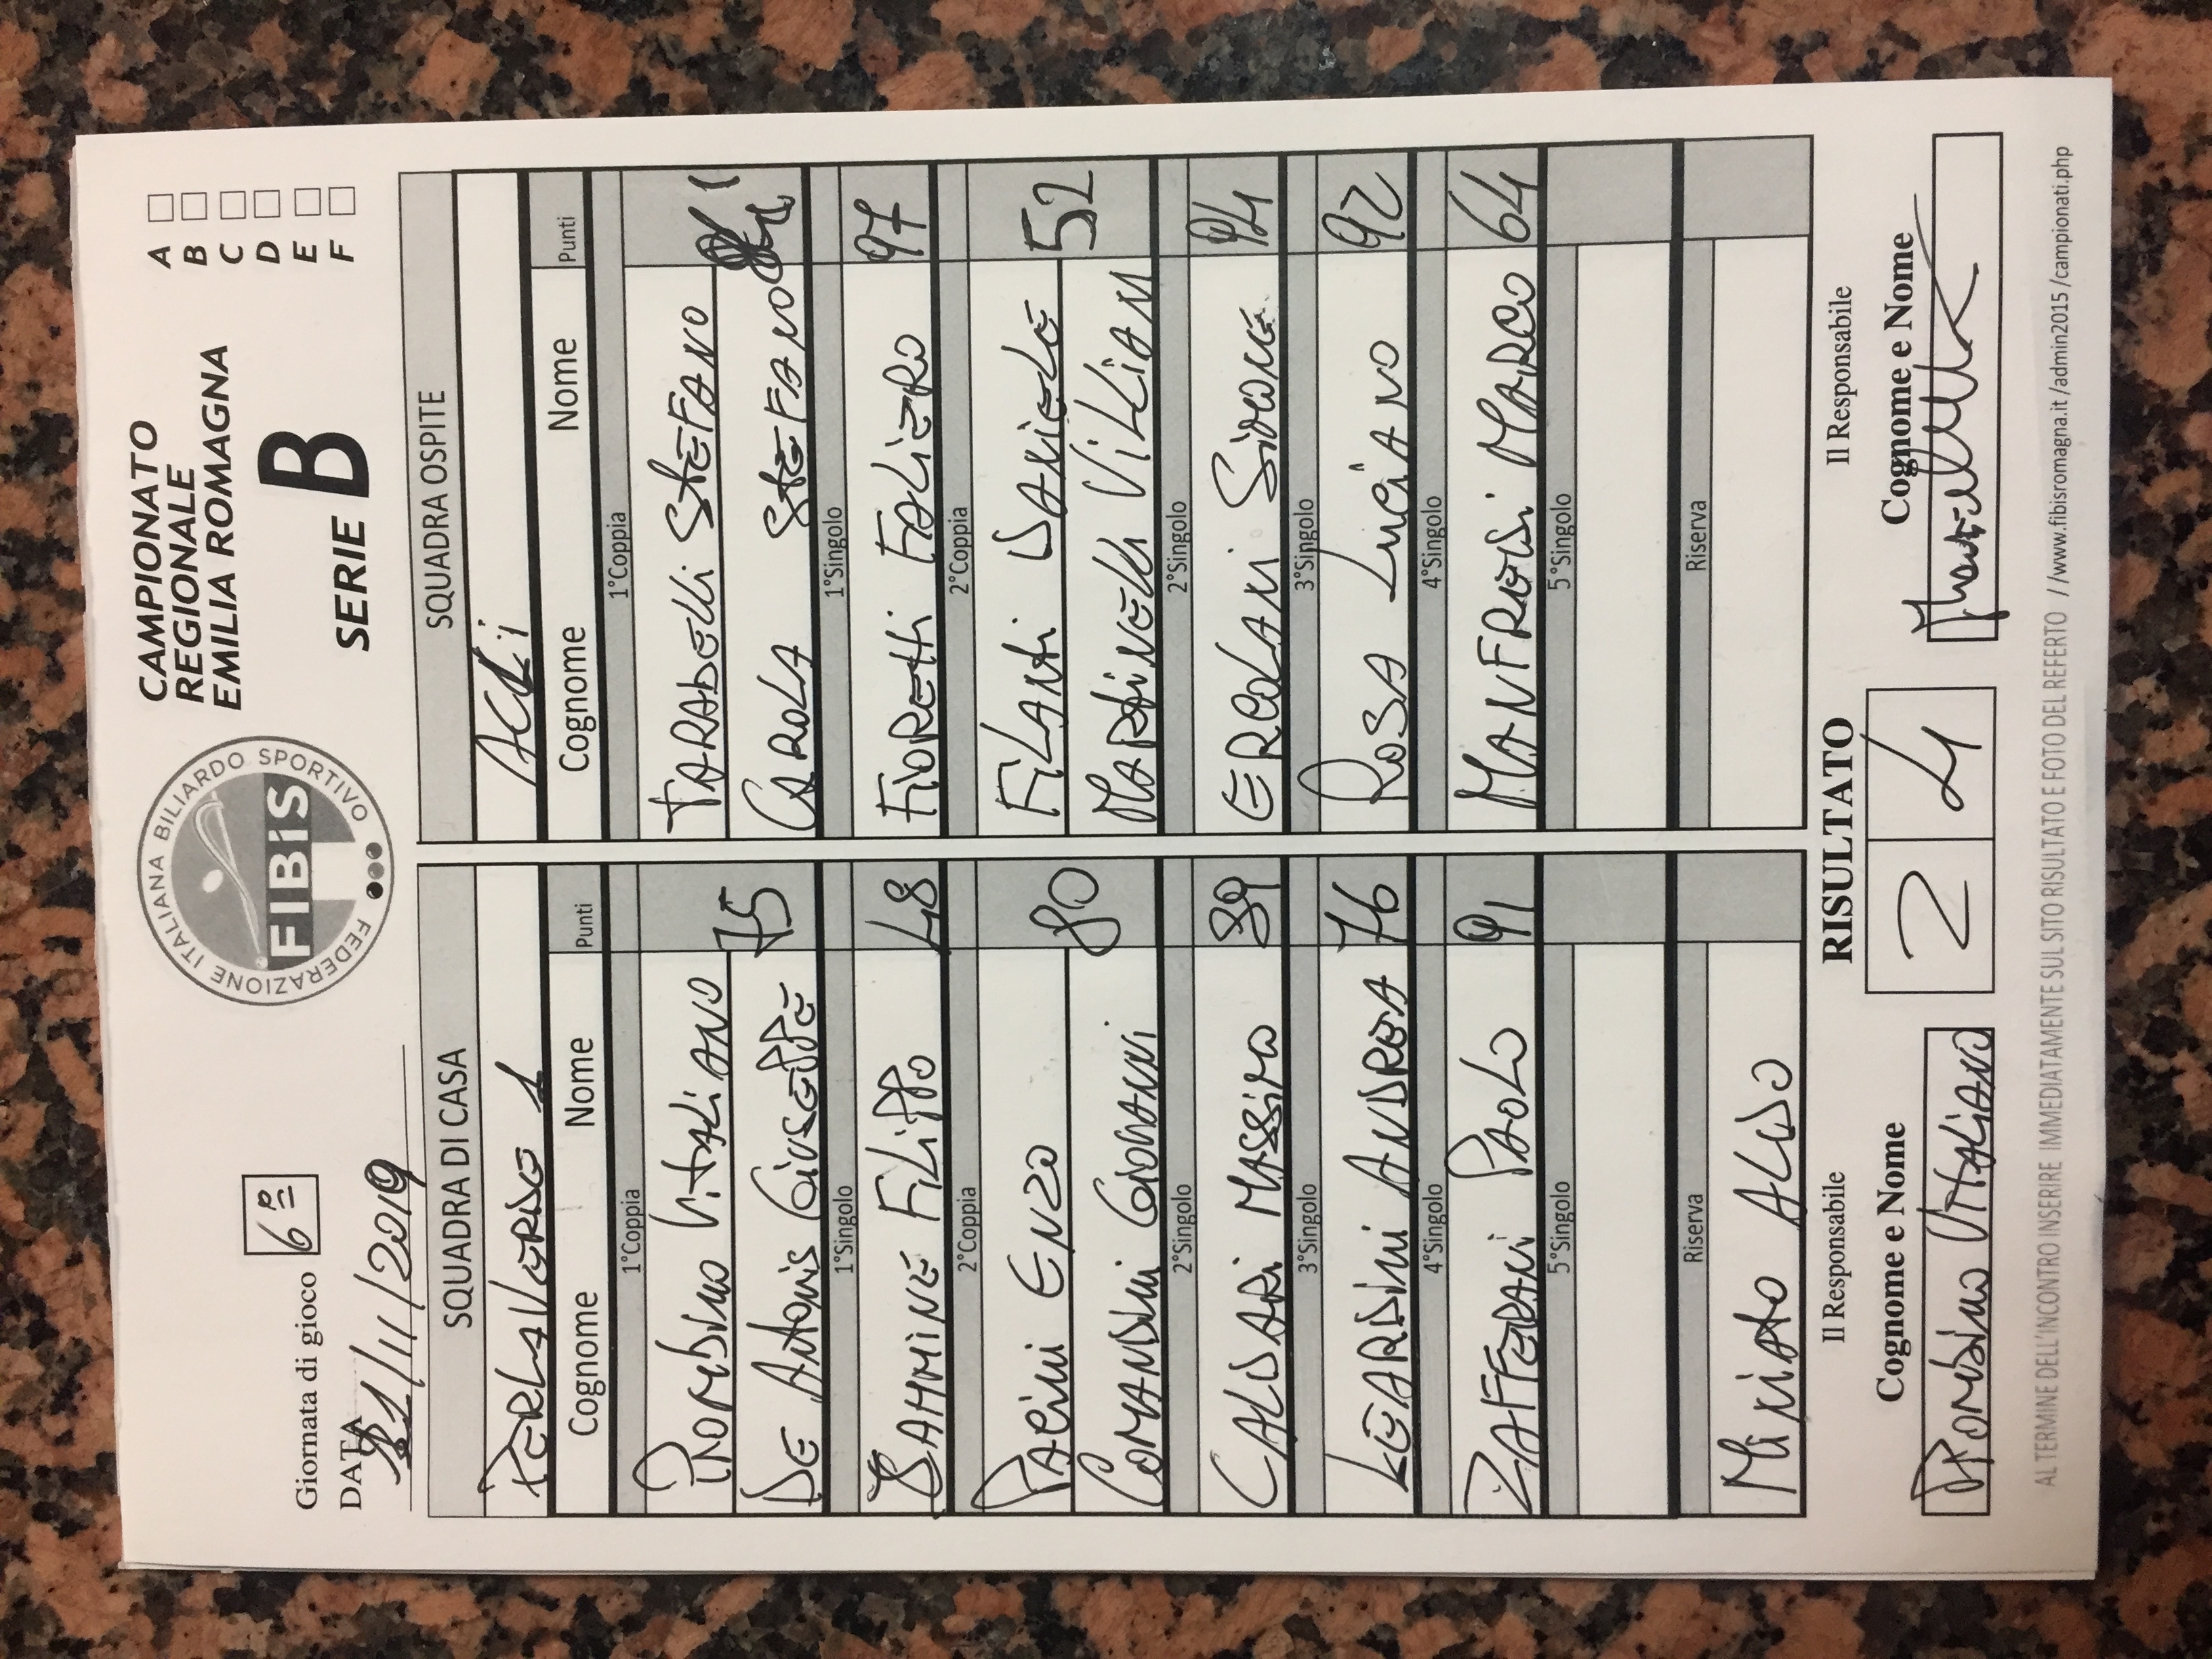 Giornata di gioco 6ª
DATA 21/11/2019
FEDERAZIONE ITALIANA BILIARDO SPORTIVO
FIBiS
CAMPIONATO
REGIONALE
EMILIA ROMAGNA
SERIE B
A
B
C
D
E
F
SQUADRA DI CASA
PERLAVERDE 1
Cognome Nome Punti
1°Coppia
PIOMBINO VITALIANO
DE ANTONIS GIUSEPPE 75
1°Singolo
FILIPPO 48
2°Coppia
PACINI ENZO
COMANDINI GIOVANNI 80
2°Singolo
CALDARI MASSIMO 89
3°Singolo
LEARDINI ANDREA 76
4°Singolo
ZAFFERANI PAOLO 91
5°Singolo
Riserva
MINIATO ALDO
SQUADRA OSPITE
ACLI
Cognome Nome Punti
1°Coppia
TARADELLI STEFANO
CAROLA STEFANO
1°Singolo
FIORETTI FALIERO 97
2°Coppia
FILANTI DANIELE
MARTINELLI VILIAM 52
2°Singolo
ERCOLANI SIMONE 94
3°Singolo
ROSA LUCIANO 92
4°Singolo
MANFRONI MARCO 64
5°Singolo
Riserva
Il Responsabile
Cognome e Nome
PIOMBINO VITALIANO
RISULTATO
2 4
Il Responsabile
Cognome e Nome
AL TERMINE DELL'INCONTRO INSERIRE IMMEDIATAMENTE SUL SITO RISULTATO E FOTO DEL REFERTO //www.fibisromagna.it/admin2015/campionati.php